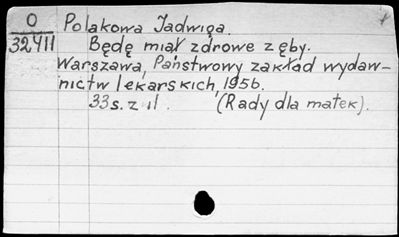 O Polakowa Jadwiga.
32411 Będę miał zdrowe zęby.
Warszawa, Państwowy zakład wydaw-
nictw lekarskich, 1956.
33 s. z il. (Rady dla matek).